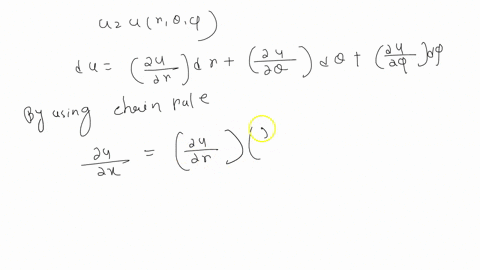 u = u(r, θ, φ)
du = (∂u/∂r) dr + (∂u/∂θ) dθ + (∂u/∂φ) dφ
By using chain rule
∂u/∂x = (∂u/∂r) (∂